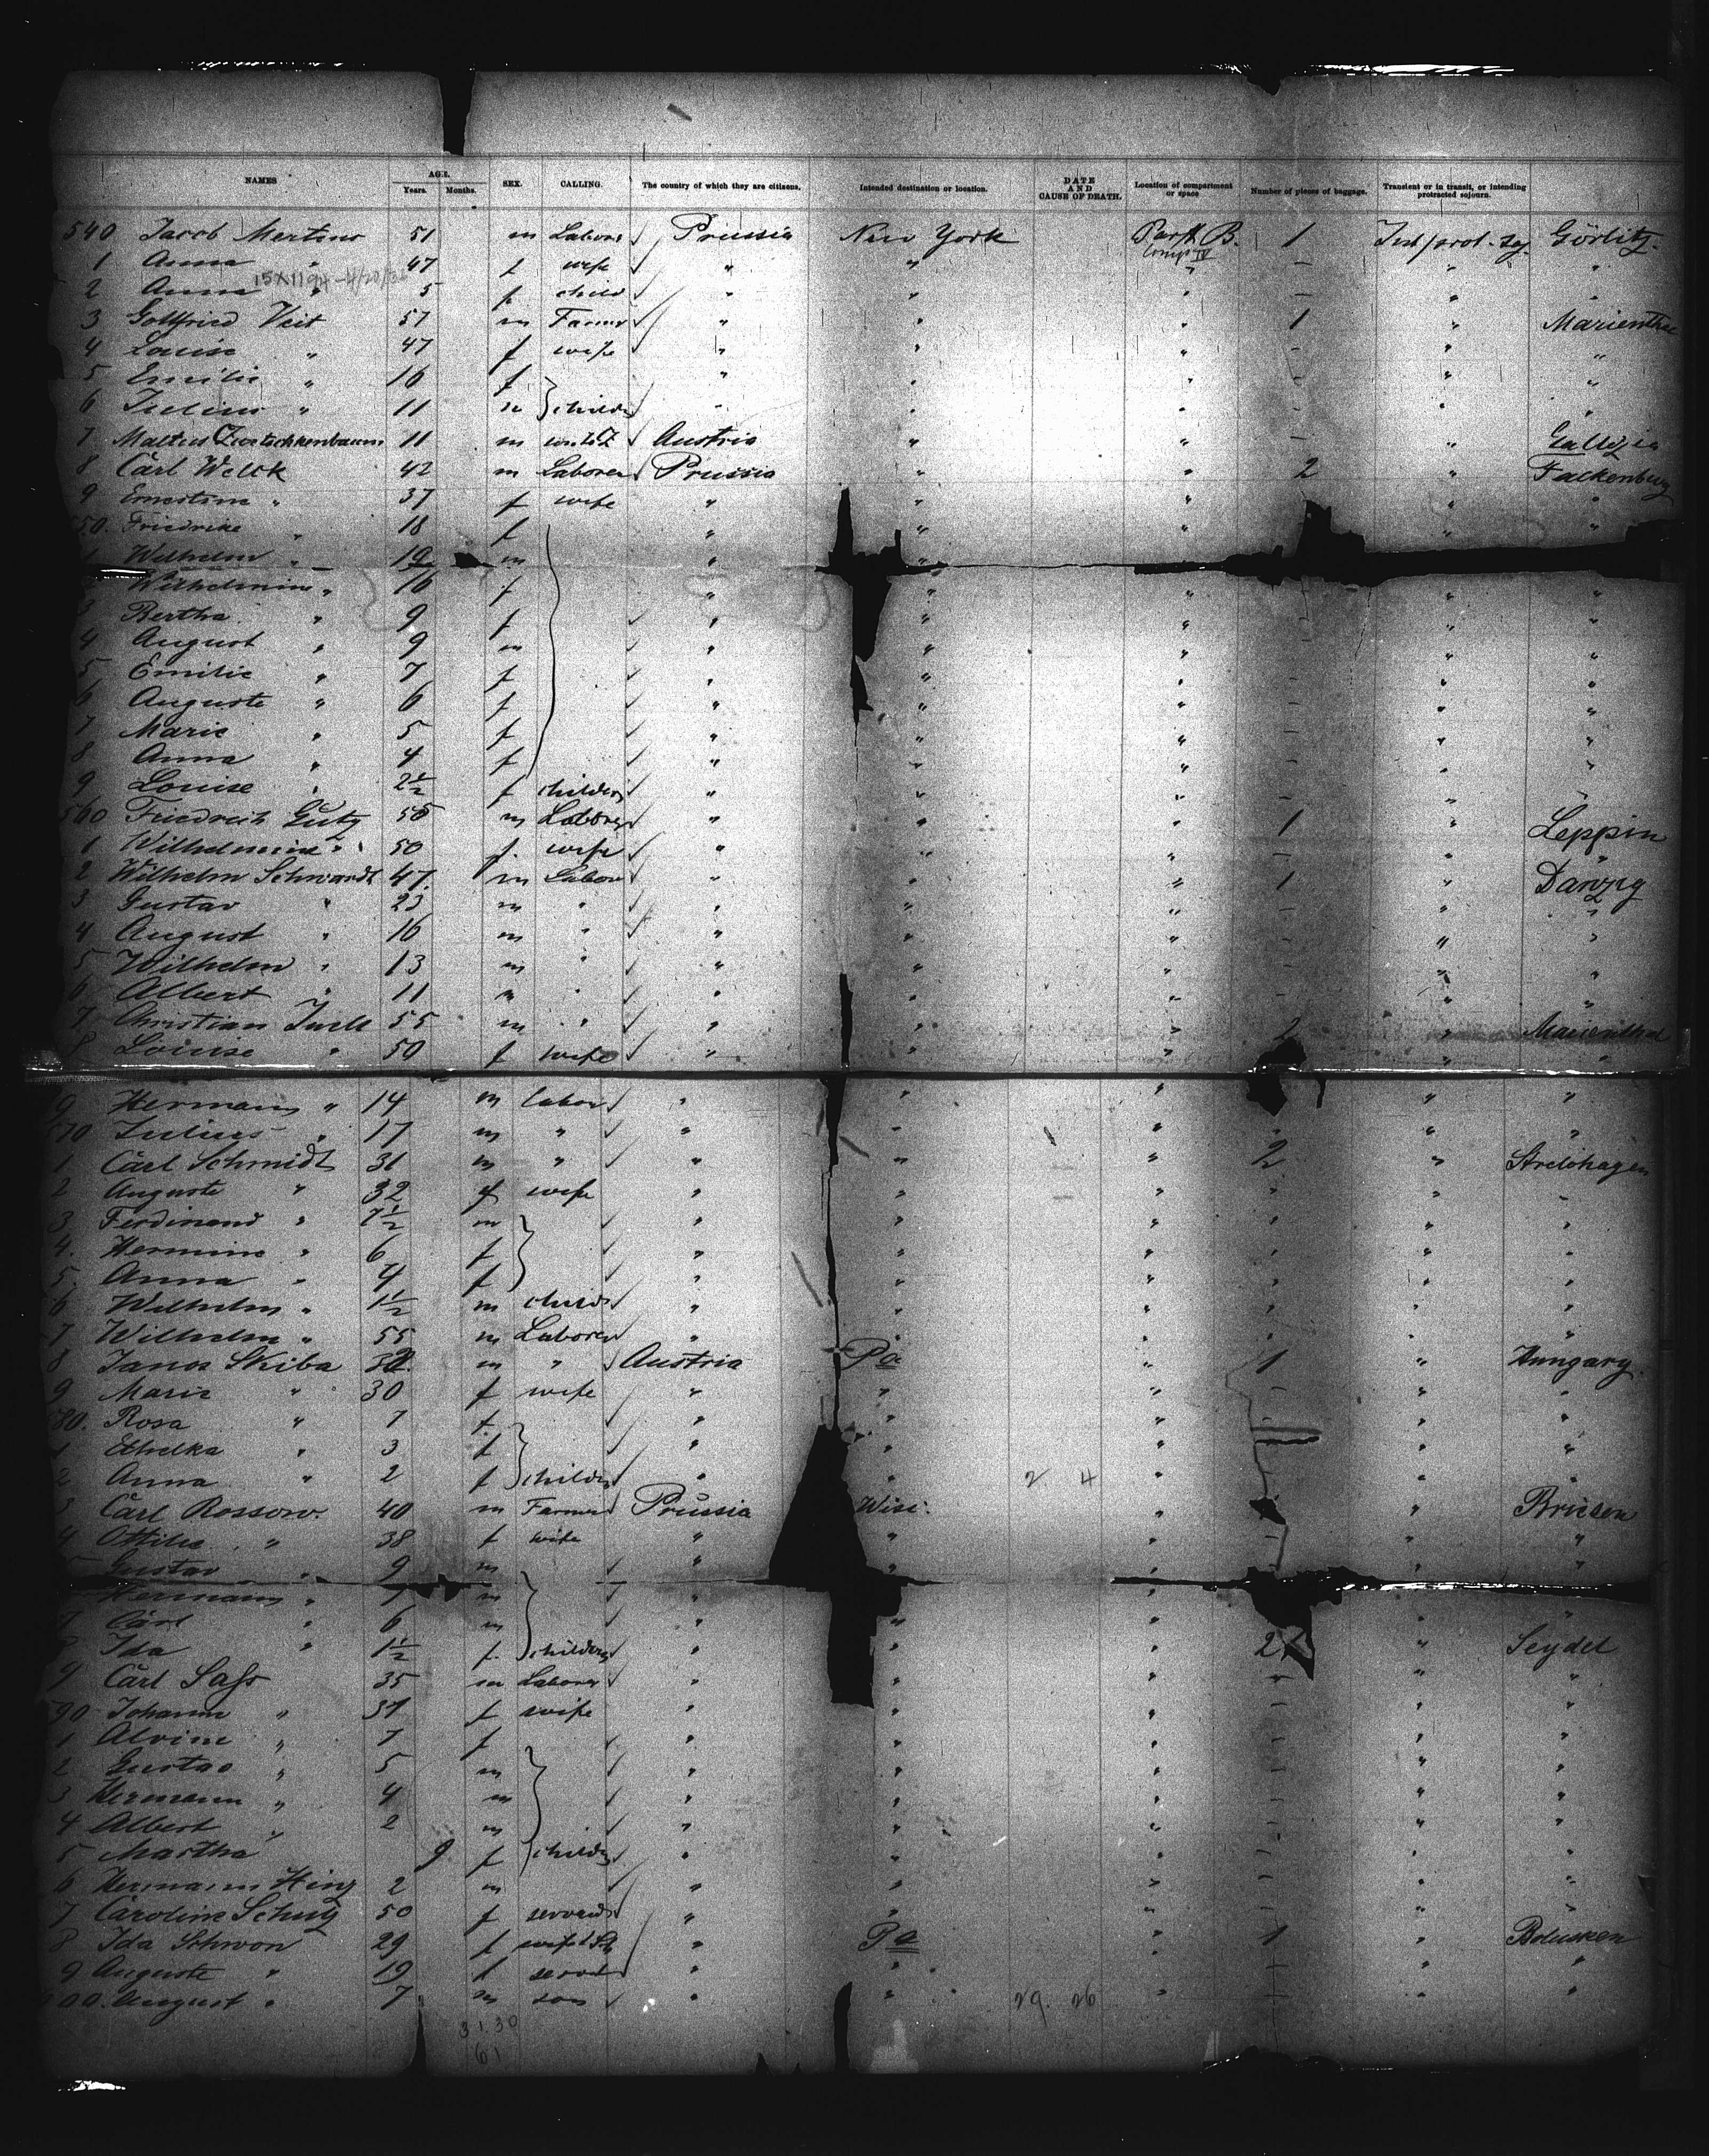 NAMES AGE. Years. Months. SEX. CALLING. The country of which they are citizens. Intended destination or location. DATE AND CAUSE OF DEATH. Location of compartment or space Number of pieces of baggage. Transient or in transit, or intending protracted sojourn.
540 Jacob Mertins 51 m Labore Prussia New York Part B. 1 Görlitz.
1 Anna " 47 f wife " " Comp IV " - " "
2 Anna " 5 f child " " " - " "
3 Gottfried Veit 57 m Farmr " " " 1 " Marienthal
4 Louise " 47 f wife " " " - " "
5 Emilie " 16 f " " " - " "
6 Julius " 11 m childr " " " - " "
7 11 m Austria " " - " Galizia
8 Carl Welck 42 m Laborer Prussia " " 2 " Falkenburg
9 Ernestine " 37 f wife " " " - " "
50. Friedrike " 18 f " " " - " "
1 Wilhelm " 19 m " "
Wilhelmine " 16 f " " " - " "
3 Bertha " 9 f " " " - " "
4 August " 9 m " " " - " "
5 Emilie " 7 f " " " - " "
6 Auguste " 6 f " " " - " "
7 Marie " 5 f " " " - " "
8 Anna " 4 f " " " - " "
9 Louise " 2½ f childern " " " - " "
560 Friedrich Gutz m Laborer " " " 1 " Leppin
1 Wilhelmine " 50 f. wife " " " - " "
2 Wilhelm Schwardt 47 m Labor " " " 1 " Danzig
3 Gustav " 23 m " " " " - " "
4 August " 16 m " " " " - " "
5 Wilhelm " 13 m " " " " - " "
6 Albert " 11 m " " " " - " "
7 Christian 55 m " " " " 2 " Marienthal
8 Louise " 50 f wife " " " " "
9 Hermann " 14 m labor " " " " "
570 Julius " 17 m " " " " " " "
1 Carl Schmidt 31 m " " " " 2 "
2 Auguste " 32 f wife " " " " " "
3 Ferdinand " 7½ m " " " " " "
4. Hermine " 6 f " " " " " "
5. Anna " 4 f " " " " " "
6 Wilhelm " 1½ m childr " " " " " "
7 Wilhelm " 55 m Laborer " " " " " "
8 Janos Skiba m " Austria Pa " 1 " Hungary.
9 Marie " 30 f wife " " " " "
80. Rosa " 7 f. " " " " "
1 Ethelka " 3 f " " " " "
2 Anna " 2 f childrn " " 2 4 " " "
3 Carl Rossow. 40 m Farmer Prussia Wisc. " " Briesen
4 Ottilie " 38 f wife " " " " "
5 Gustav " 9 m " " " " "
Hermann " 7 m " "
7 Carl " 6 m " " " " "
8 Ida " 1½ f. childern " " " 2 " Seydel
9 Carl Saſs 35 m Laborer " " " - " "
590 Johanne " 37 f wife " " " - " "
1 Alvine " 7 f " " " - " "
2 Gustav " 5 m " " " - " "
3 Hermann " 4 m " " " - " "
4 Albert " 2 m " " " - " "
5 Martha 9 f childrn " " " - " "
6 Hermann Hinz 2 m " " " - " "
7 Caroline Schutz 50 f servant " " " - " "
8 Ida Schwon 29 f " Pa " 1 "
9 Auguste " 19 f servt " " " - " "
600. August " 7 m son " " 29. 26 " - " "
31.30
61